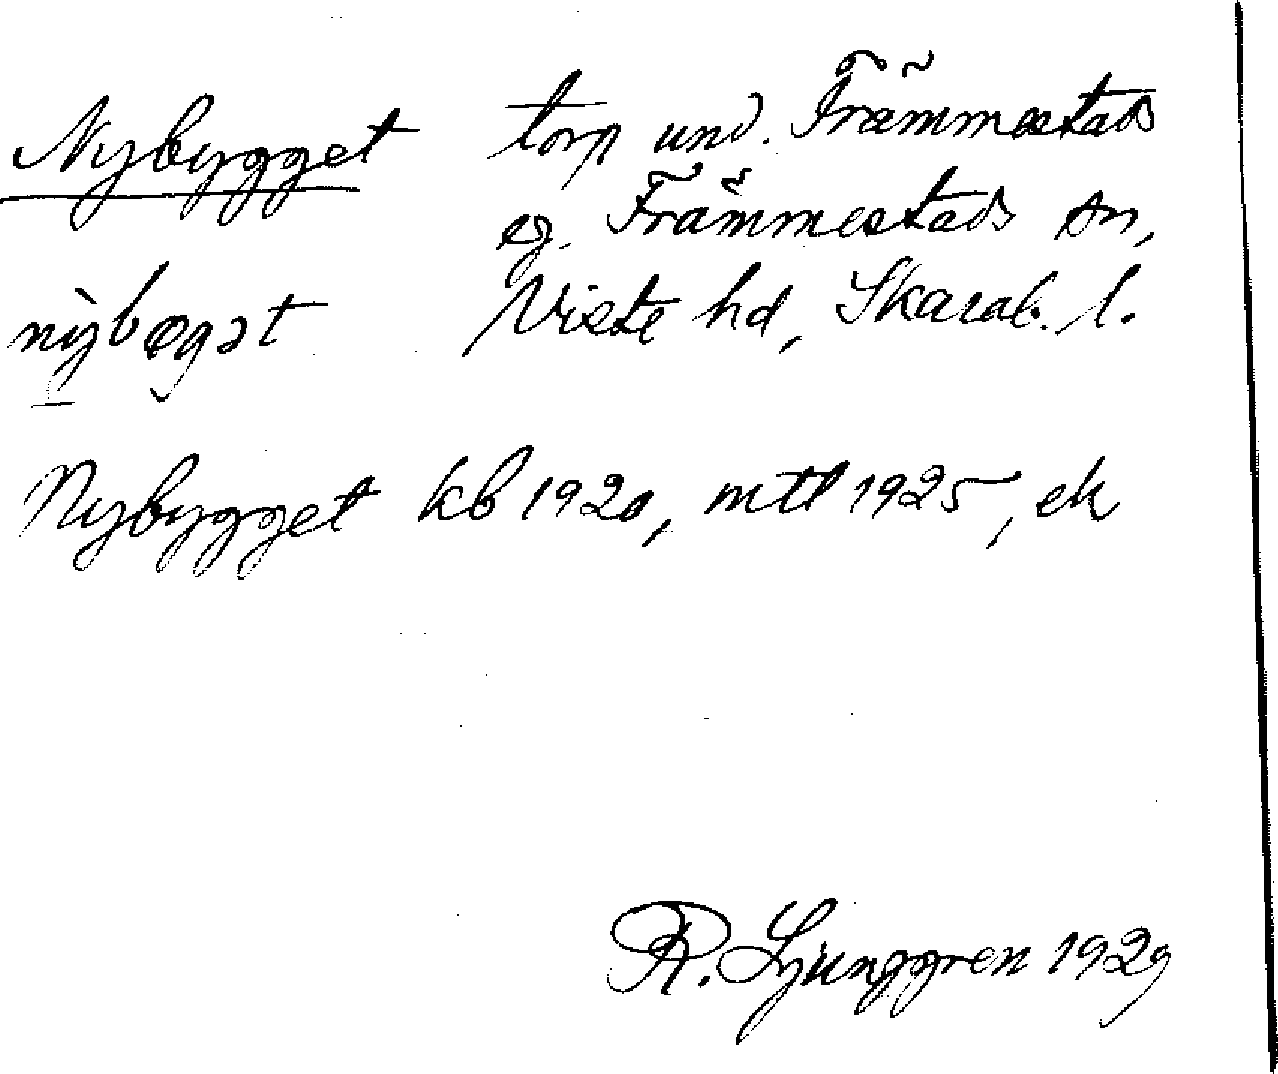 Nybygget torp und. Främmestads
eg. Främmestads sn,
nỳbøgət Viste hd, Skarab. l.
Nybygget kb 1920, mtl 1925, ek
R. Ljunggren 1929